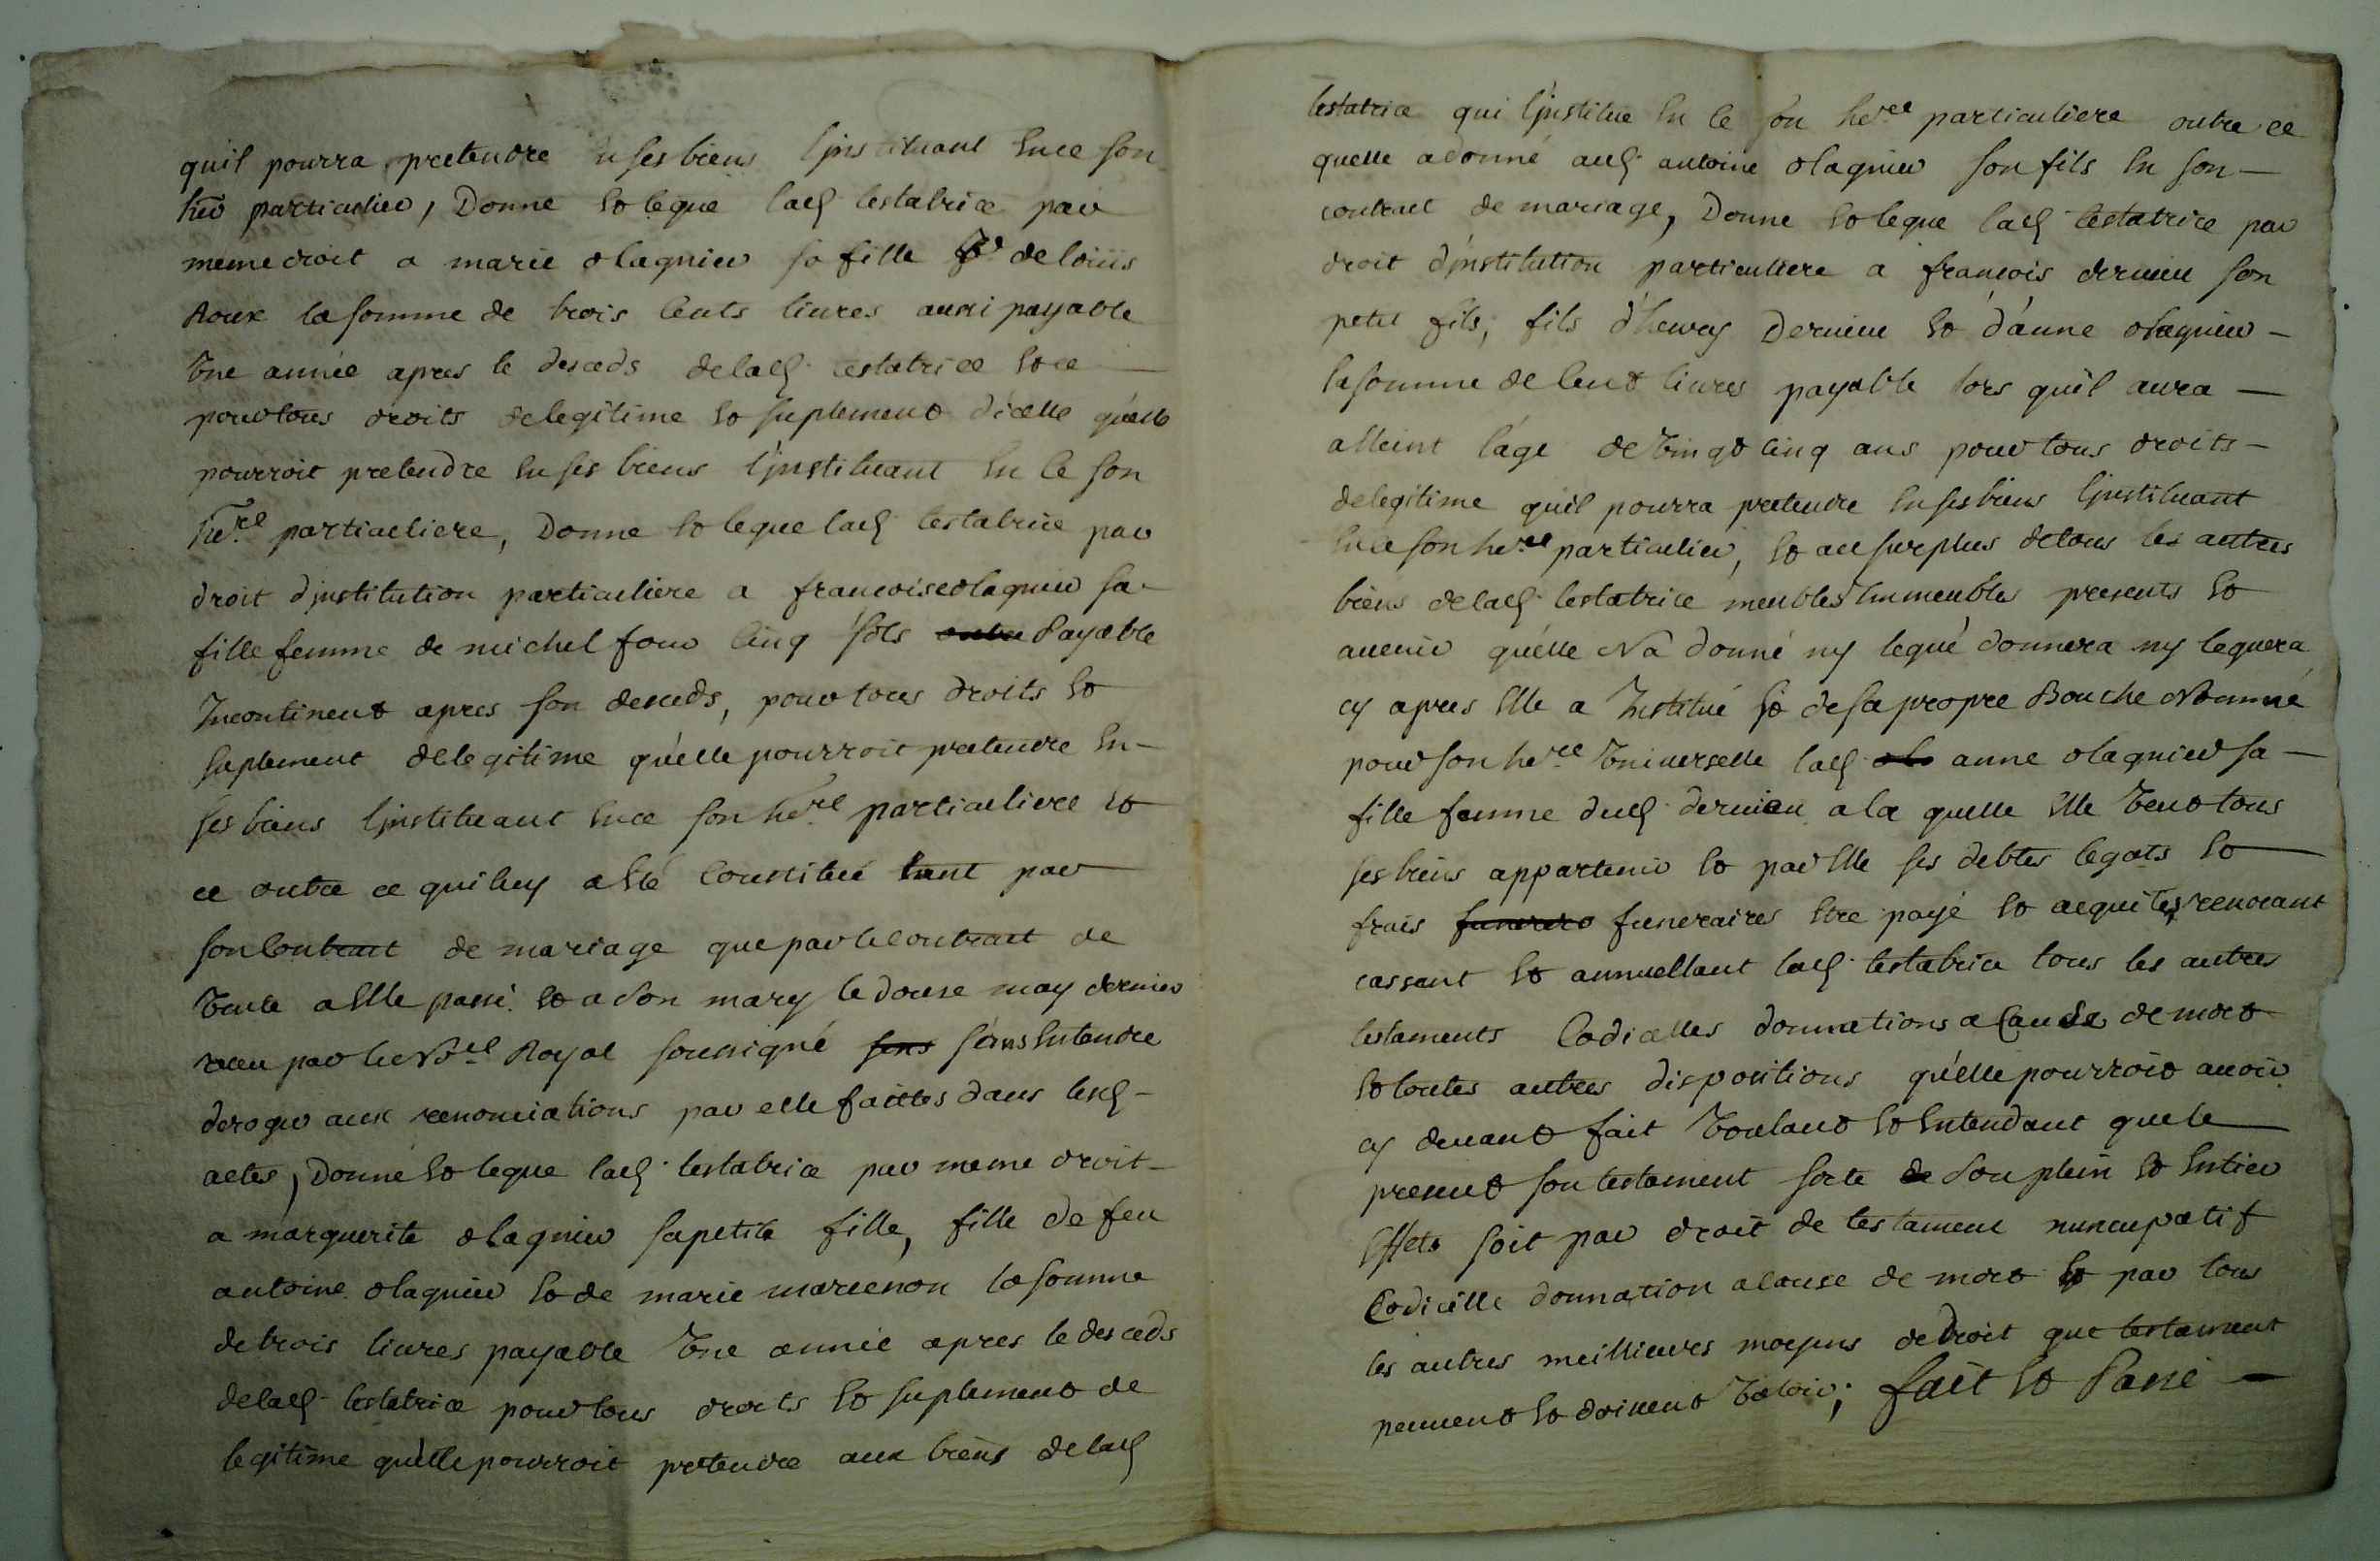 quil pourra pretendre en ses biens l'jnstituant en ce son
her particulier, Donne et legue lad testatrice par
meme droit a marie olagnier sa fille fe de loüis
Roux la somme de trois cents livres aussi payable
Une année apres le deceds de lad testatrice et ce
pour tous droits de legitime et suplement d'icelle quelle
pourroit pretendre en ses biens l'jnstituant en ce son
here particuliere, Donne et legue lad testatrice par
droit d'jnstitution particuliere a francoise olagnier sa
fille femme de michel four cinq sols Payable
Incontinent apres son deceds, pour tous droits et
suplement de legitime quelle pourroit pretendre en
ses biens l'jnstituant en ce son here particuliere et
ce outre ce qui luy a esté constitué tant par
son contract de mariage que par le contract de
vente a elle passé et a son mary le douse may dernier
receu par le nore Royal soussigné sans entendre
deroger aux renonciations par elle faittes dans lesd
actes, Donne et legue lad testatrice par meme droit
a marguerite olagnier sa petite fille, fille de feu
antoine olagnier et de marie marcenon la somme
de trois livres payable Une année apres le desceds
de lad testatrice pour tous droits et suplement de
legitime quelle pourroit pretendre aux biens de lad
testatrice qui l'jnstitue en ce son here particuliere outre ce
quelle a donné aud antoine olagnier son fils en son
contract de mariage, Donne et legue lad testatrice par
droit d'jnstitution particuliere a francois dervieu son
petit fils, fils d'henry Dervieu et d'anne olagnier
la somme de cent livres payable lors quil aura
atteint l'age de vingt cinq ans pour tous droits
de legitime quil pourra pretendre en ses biens l'jnstituant
en ce son here particulier, et au surplus de tous les autres
biens de lad testatrice meubles Immeubles presents et
avenir quelle Na donné ny legué donnera ny leguera
cy apres elle a Institué et de sa propre Bouche Nommé
pour son here Universelle lad anne olagnier sa
fille femme dud dervieu a la quelle elle veut tous
ses biens appartenir et par elle ses debtes legats et
frais funeraires etre payé et acquités, revocant
cassant et annuellant lad testatrice tous les autres
testaments Codicilles donnations a Cause de mort
et toutes autres dispositions quelle pourroit avoir
cy devant fait Voulant et entendant que le
present son testament sorte son plein et entier
effets soit par droit de testament nuncupatif
Codicille donnation a cause de mort et par tous
les autres meillieurs moyens de droit que testament
peuvent et doivent valoir; fait et Passé